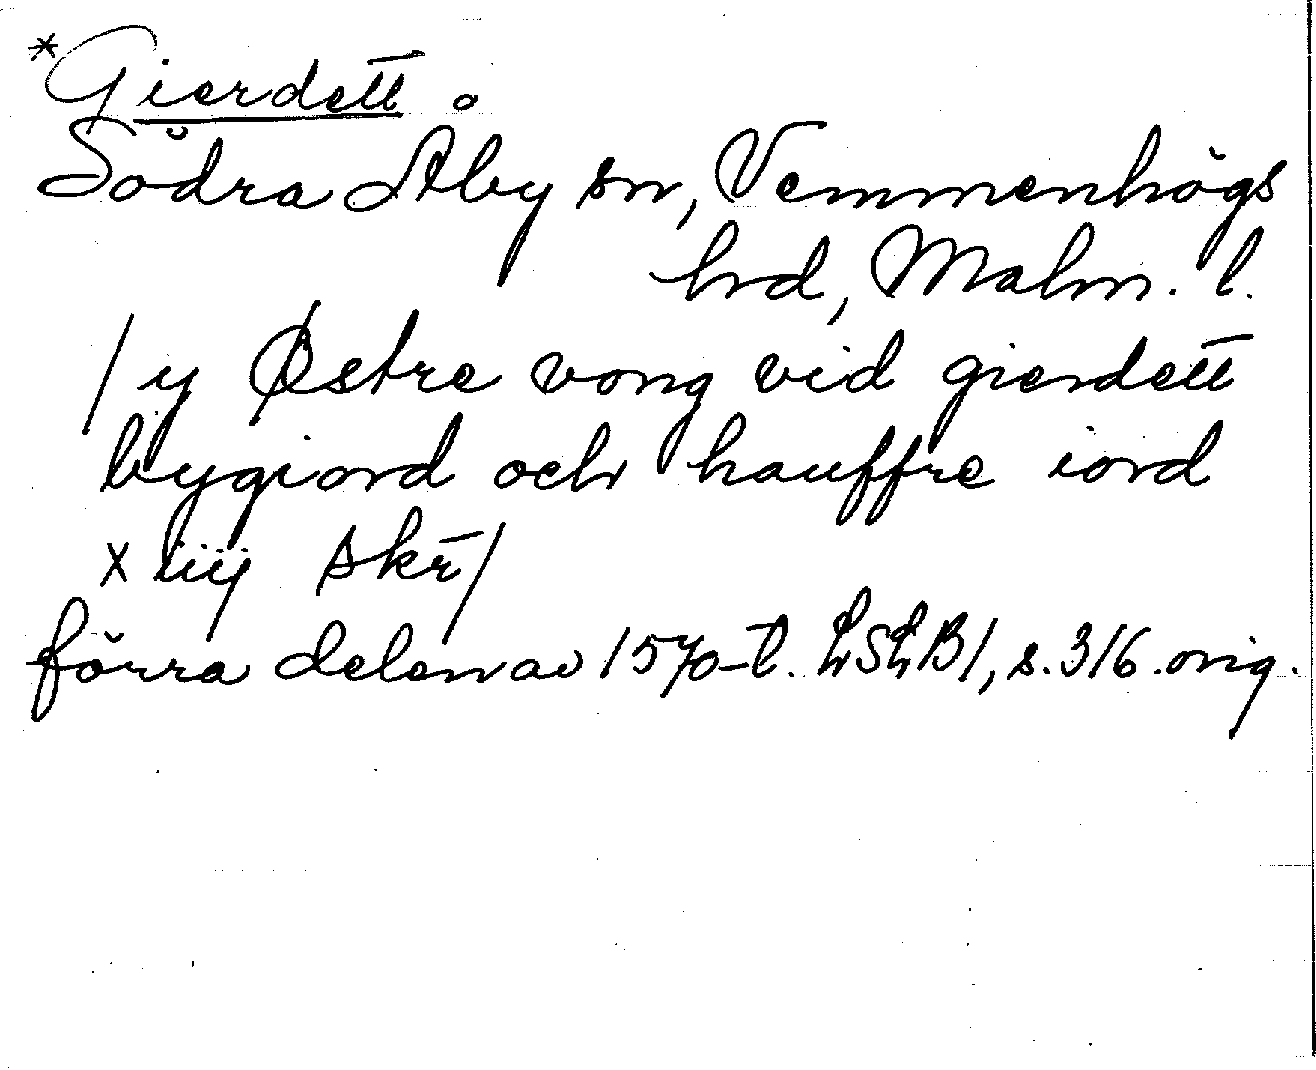 *Gierdett
Södra Åby sn, Vemmenhögs
hrd, Malm. l.
/y Østre vong vid gierdett
bygiord och hauffre iord
x iiij skr/
förra delen av 1570-t. LSLB1, s. 316 orig.